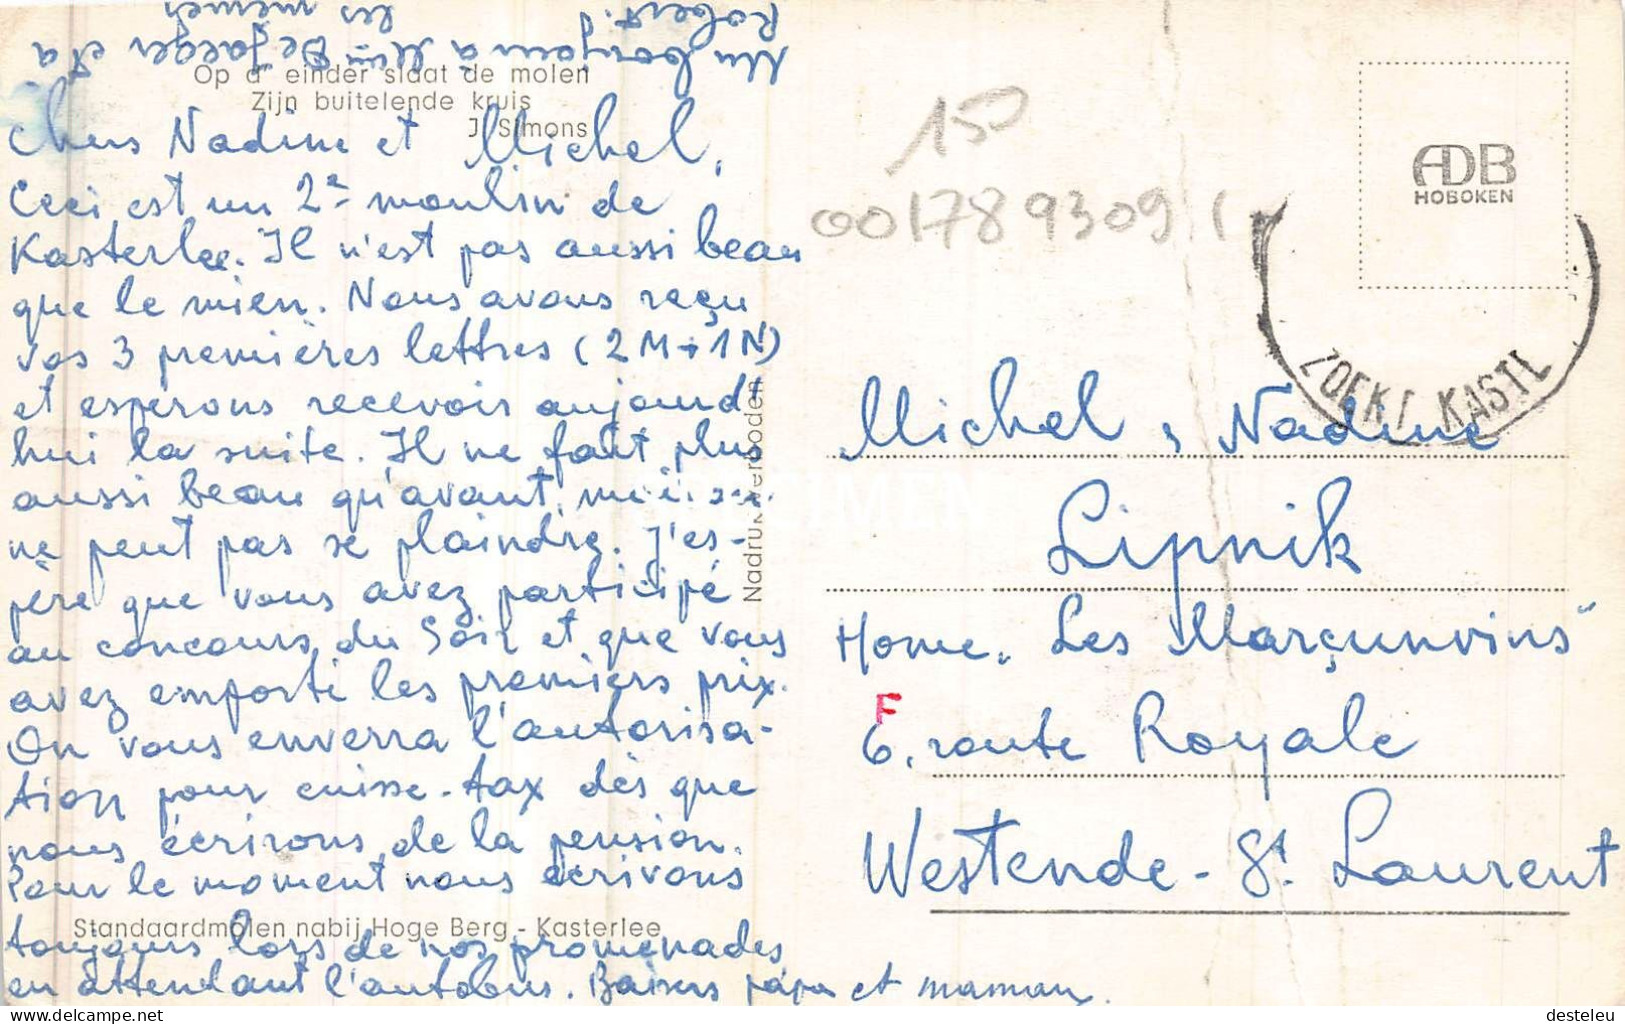 Un bonjour à Mme Dejaeger et à
Robert. les mêmes
Op d' einder slaat de molen
Zijn buitelende kruis
J. Simons
Chers Nadine et Michel,
Ceci est un 2e moulin de
Kasterlee. Il n'est pas aussi beau
que le mien. Nous avons reçu
vos 3 premières lettres (2 M + 1 N)
et esperons recevoir aujourd
hui la suite. Il ne fait plus
aussi beau qu'avant,
ne peut pas se plaindre. J'es-
père que vous avez participé
au concours du Soir et que vous
avez emporté les premiers prix.
On vous enverra l'autorisa-
tion pour cuisse-tax dès que
nous écrirons de la pension.
Pour le moment nous écrivons
toujours lors de nos promenades
en attendant l'autobus. Baisers papa et maman.
Standaardmolen nabij Hoge Berg - Kasterlee
Nadruk verboden
150
001789309 1
ADB
HOBOKEN
ZOEKT KASTL
Michel, Nadine
Lipnik
Home. Les Marçunvins"
F
6, route Royale
Westende - St. Laurent
SPECIMEN
delcampe.net
desteleu